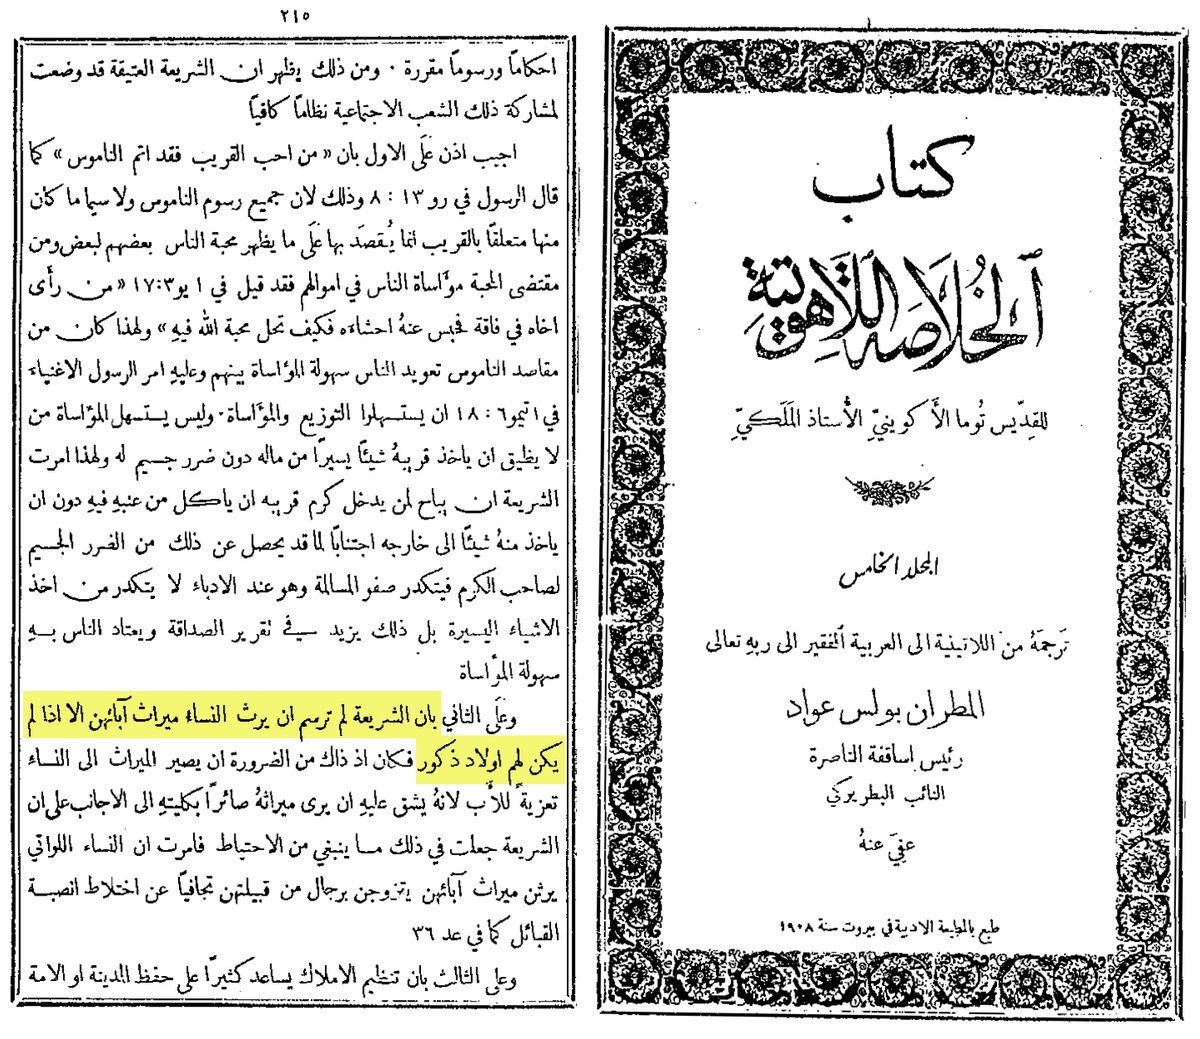 كتاب
الخلاصة اللاهوتية
للقديس توما الأكوينيّ الأستاذ الملَكيّ
المجلد الخامس
ترجمهُ من اللاتينية الى العربية الفقير الى ربهِ تعالى
المطران بولس عواد
رئيس اساقفة الناصرة
النائب البطريركي
عفيَ عنهُ
طبع بالمطبعة الادبية في بيروت سنة ١٩٠٨
٢١٥
احكاماً ورسوماً مقررة ٠ ومن ذلك يظهر ان الشريعة العتيقة قد وضعت
لمشاركة ذلك الشعب الاجتماعية نظاماً كافياً
اجيب اذن عَلَى الاول بان «من احب القريب فقد اتم الناموس» كما
قال الرسول في رو ١٣ : ٨ وذلك لان جميع رسوم الناموس ولا سيما ما كان
منها متعلقاً بالقريب انما يُقصَد بها عَلَى ما يظهر محبة الناس بعضهم لبعض ومن
مقتضى المحبة مؤاساة الناس في اموالهم فقد قيل في ١ يو ٣:١٧ «من رأى
اخاه في فاقة فحبس عنهُ احشاءه فكيف تحل محبة الله فيهِ» ولهذا كان من
مقاصد الناموس تعويد الناس سهولة المؤاساة بينهم وعليهِ امر الرسول الاغنياء
في ١ تيمو ٦ : ١٨ ان يستسهلوا التوزيع والمؤاساة٠ وليس يستسهل المؤاساة من
لا يطيق ان ياخذ قريبهُ شيئاً يسيراً من ماله دون ضرر جسيم له ولهذا امرت
الشريعة ان يباح لمن يدخل كرم قريبه ان ياكل من عنبهِ فيهِ دون ان
ياخذ منهُ شيئاً الى خارجه اجتناباً لما قد يحصل عن ذلك من الضرر الجسيم
لصاحب الكرم فيتكدر صفو المسالمة وهو عند الادباء لا يتكدر من اخذ
الاشياء اليسيرة بل ذلك يزيد في تقرير الصداقة ويعتاد الناس بهِ
سهولة المؤاساة
وعَلَى الثاني بان الشريعة لم ترسم ان يرث النساء ميراث آبائهن الا اذا لم
يكن لهم اولاد ذكور فكان اذ ذاك من الضرورة ان يصير الميراث الى النساء
تعزيةً للأب لانهُ يشق عليهِ ان يرى ميراثهُ صائراً بكليتهِ الى الاجانب على ان
الشريعة جعلت في ذلك ما ينبغي من الاحتياط فامرت ان النساء اللواتي
يرثن ميراث آبائهن يتزوجن برجال من قبيلتهن تجافياً عن اختلاط انصبة
القبائل كما في عد ٣٦
وعلى الثالث بان تنظيم الاملاك يساعد كثيراً على حفظ المدينة او الامة